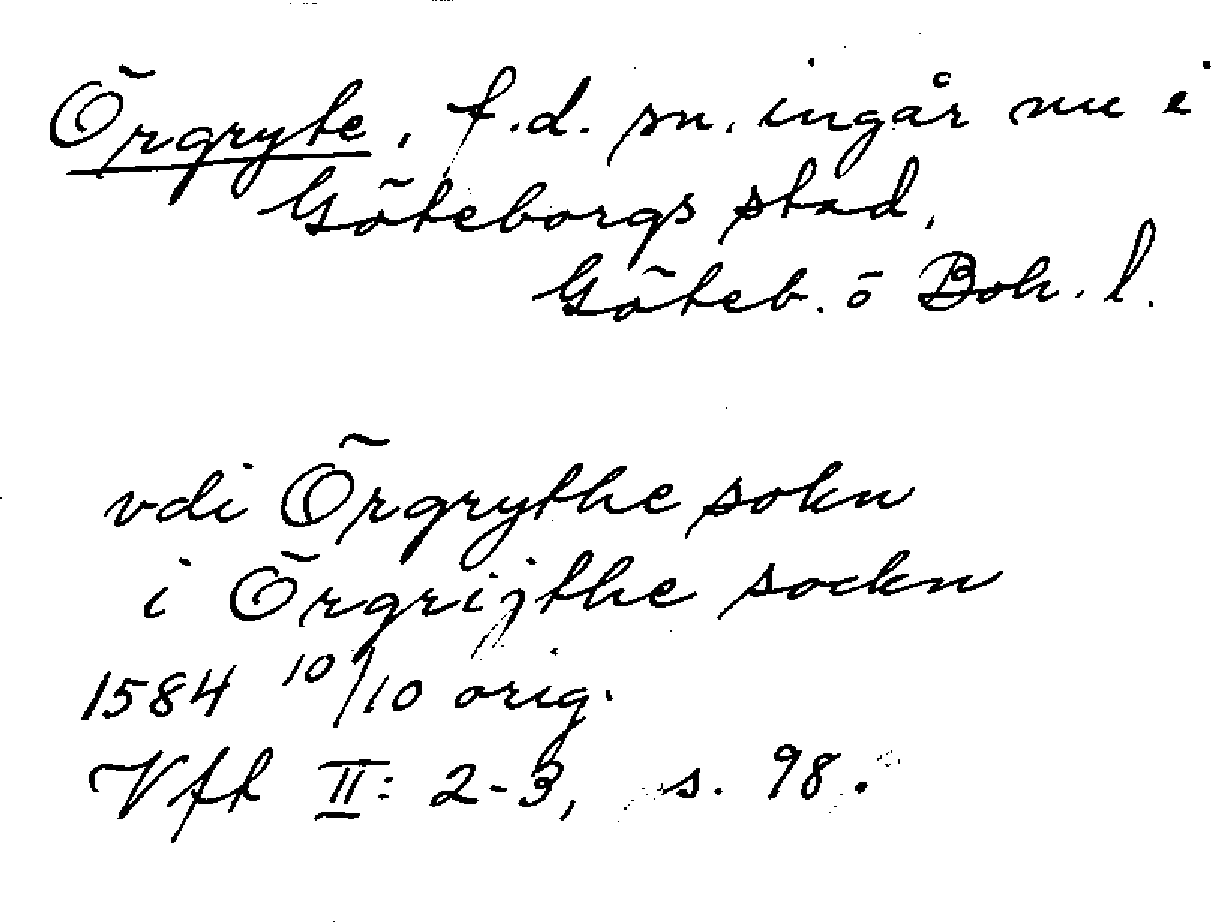 Örgryte, f.d. sn. ingår nu i
Göteborgs stad,
Göteb. o Boh. l.
vdi Örgrythe sokn
i Örgrijthe sockn
1584 10/10 orig.
Vft II: 2-3, s. 98.